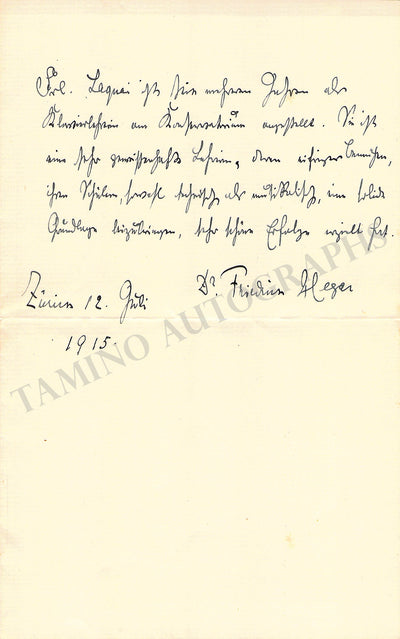 Frl. Laquai ist seit mehreren Jahren als
Klavierlehrerin am Konservatorium angestellt. Sie ist
eine sehr gewissenhafte Lehrerin, deren eifriges Bemühen,
ihren Schülern, sowohl technisch als musikalisch, eine solide
Grundlage beizubringen, sehr schöne Erfolge erzielt hat.
Dr Friedrich Hegar
Zürich 12. Juli
1915.
TAMINO AUTOGRAPHS